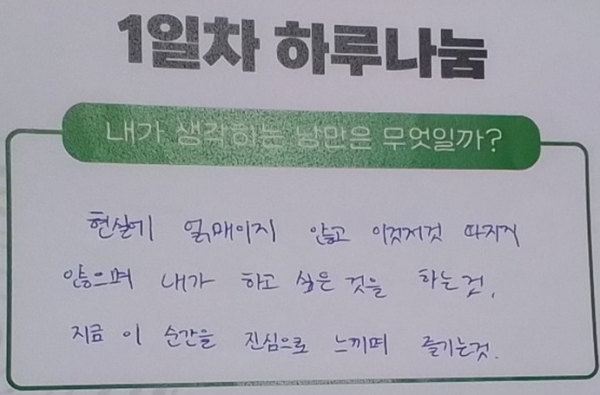 1일차 하루나눔
내가 생각하는 낭만은 무엇일까?
현실에 얽매이지 않고 이것저것 따지지
않으며 내가 하고 싶은 것을 하는것.
지금 이 순간을 진심으로 느끼며 즐기는것.